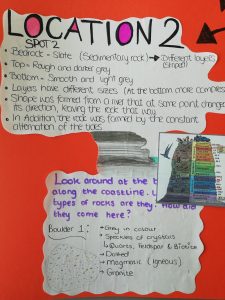 LOCATION 2
SPOT 2
• Bedrock - Slate (Sedimentary rock) → Different layers
(striped)
• Top = Rough and darker grey
• Bottom - Smooth and light grey
• Layers have different sizes (At the bottom more compress
• Shape was formed from a river that at some point changed
its direction, leaving the rock that way.
• In Addition the rock was formed by the constant
alternation of the tides.
Look around at the b
along the coastline.
types of rocks are they. How did
they come here?
Boulder 1:
→ Grey in colour
→ Speckles of crystals
↳ Quartz, Feldspar & Biotite
→ Dotted
→ magmatic (igneous)
→ Granite